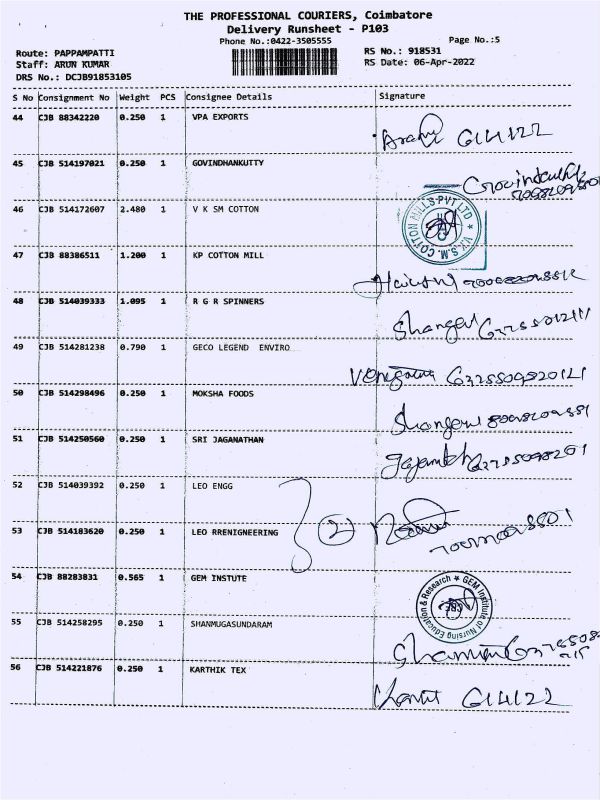 THE PROFESSIONAL COURIERS, Coimbatore
Delivery Runsheet - P103
Phone No.:0422-3505555
Page No.:5
Route: PAPPAMPATTI
RS No.: 918531
Staff: ARUN KUMAR
RS Date: 06-Apr-2022
DRS No.: DCJB91853105
S No Consignment No Weight PCS Consignee Details Signature
44 CJB 88342220 0.250 1 VPA EXPORTS
6/4/22
45 CJB 514197021 0.250 1 GOVINDHANKUTTY
46 CJB 514172607 2.480 1 V K SM COTTON
V.K.S.M. COTTON MILLS PVT LTD
47 CJB 88386511 1.200 1 KP COTTON MILL
48 CJB 514039333 1.095 1 R G R SPINNERS
49 CJB 514281238 0.790 1 GECO LEGEND ENVIRO
50 CJB 514298496 0.250 1 MOKSHA FOODS
51 CJB 514250560 0.250 1 SRI JAGANATHAN
52 CJB 514039392 0.250 1 LEO ENGG
2
53 CJB 514183620 0.250 1 LEO RRENIGNEERING
54 CJB 88283831 0.565 1 GEM INSTUTE
GEM Institute of Nursing Education & Research
55 CJB 514258295 0.250 1 SHANMUGASUNDARAM
56 CJB 514221876 0.250 1 KARTHIK TEX
6/4/22